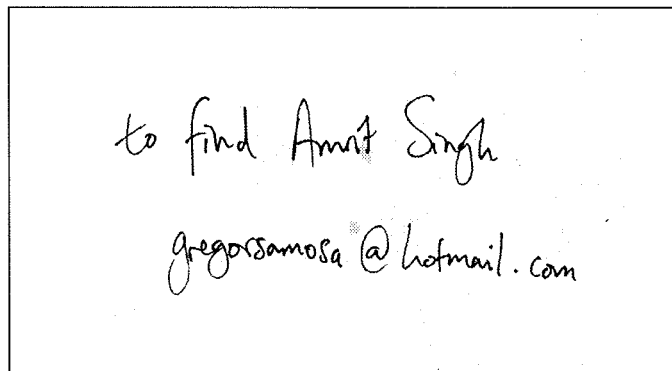 to find Amrit Singh
gregorsamosa@hotmail.com